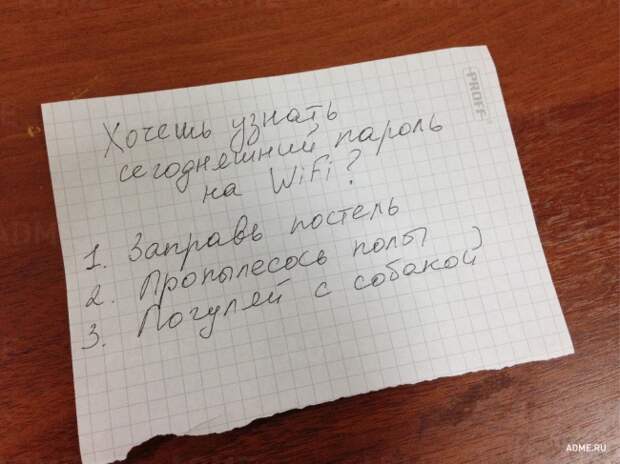 PROFF
Хочешь узнать
сегодняшний пароль
на WiFi?
1. Заправь постель
2. Пропылесось полы
3. Погуляй с собакой)
ADME.RU